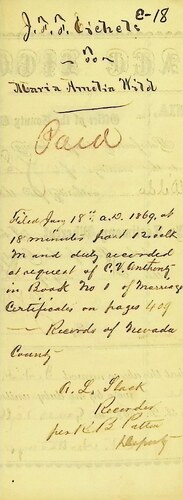 E-18
J. F. F. Eichel
to
Maria Amelia Wild
Paid
Filed Jany 18th A.D. 1869, at
18 minutes past 12 o'clk
M and duly recorded
at request of C. V. Anthony
in Book No 1 of Marriage
Certificates on pages 409
Records of Nevada
County
Recorder
per B Patton
Deputy